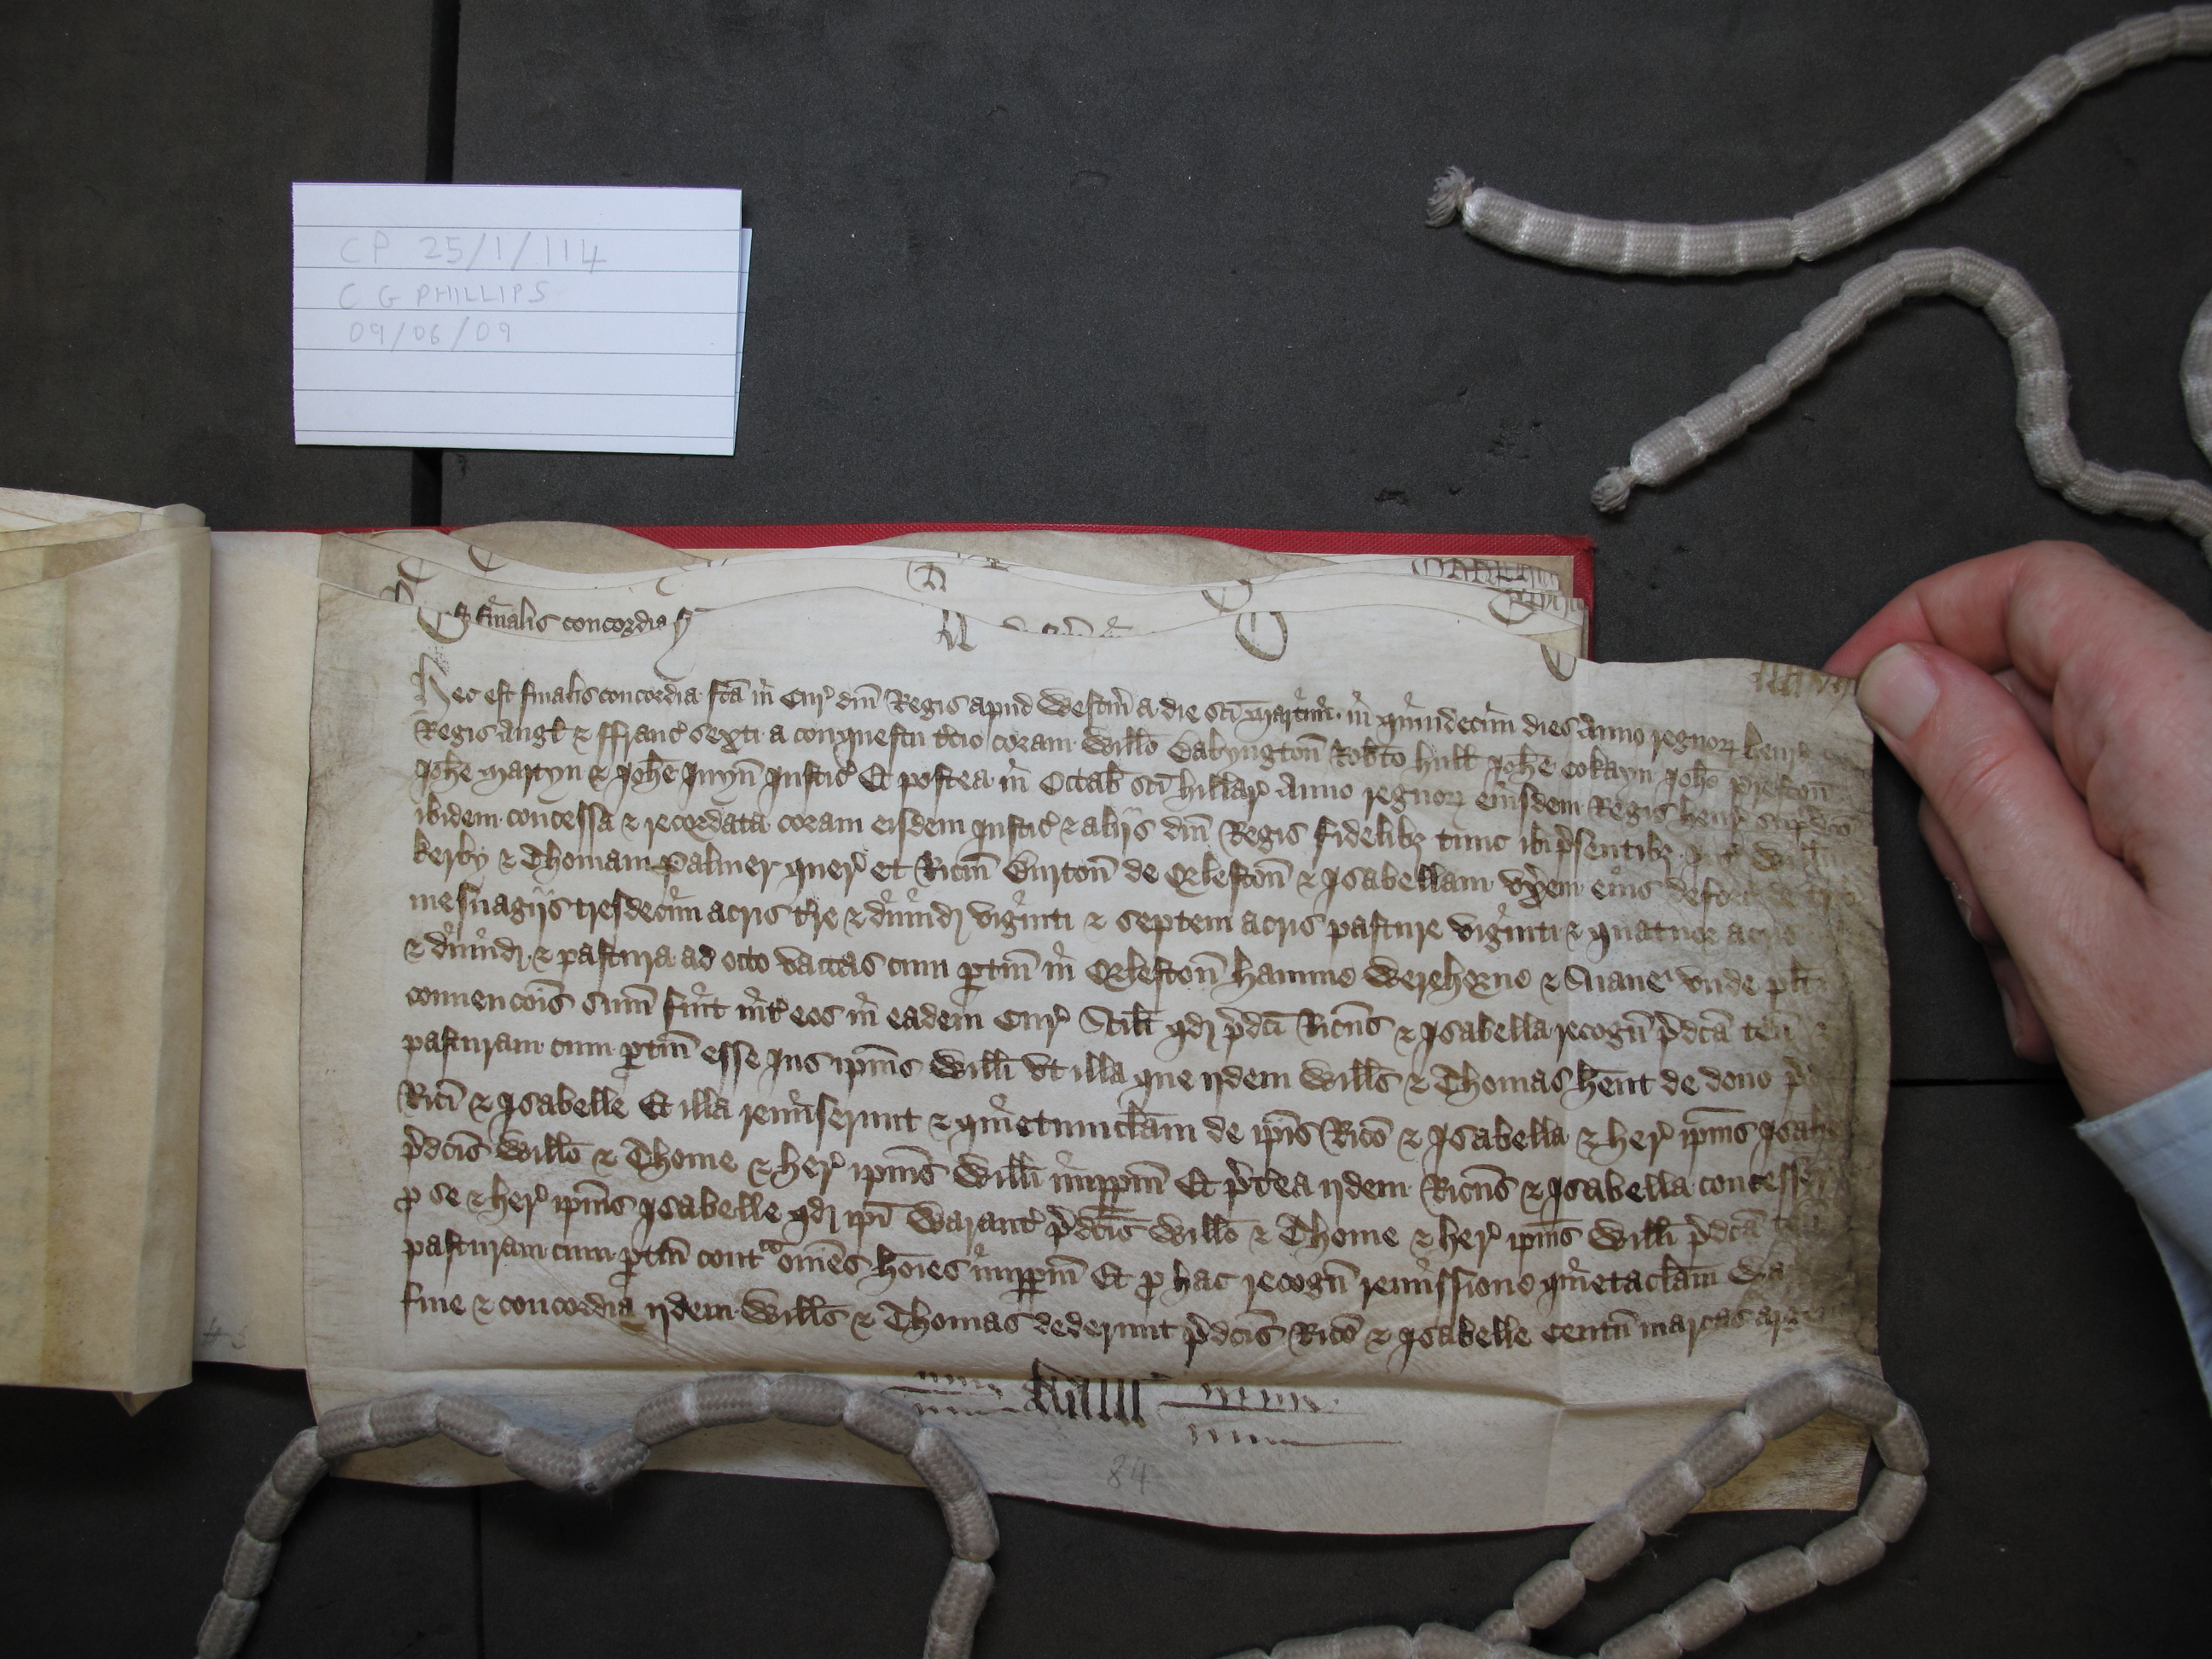 CP 25/1/114
C G PHILLIPS
09/06/09
finalis concordia
Hec est finalis concordia fc̄a in Cur' dn̄i Regis apud Westm̄ a die sc̄i Martini in quindecim dies Anno regnoꝝ Henr'
Regis Angl' & ffranc' sexti a conquestu t'cio coram Will̄o Babyngton̄ Rob̄to Hull̄ Joh̄e Cokayn Joh̄e Preston̄
Joh̄e Martyn & Joh̄e Juyn̄ Justic' Et postea in Octab̄ sc̄i Hillar' Anno regnoꝝ eiusdem Regis Henr' sup̄dc̄o
ibidem concessa & recordata coram eisdem Justic' & alijs dn̄i Regis fidelibꝫ tunc ibi p̄sentibꝫ
kerby & Thomam Palmer quer' et Ric̄m Burton̄ de Orleston̄ & Isabellam vx̄em eius deforc' de
mesuagijs tresdecim acris t're & dimid' viginti & septem acris pasture viginti & quatuor acris
& dimid' & pastura ad octo vaccas cum ꝑtin̄ in Orleston̄ Hamme Werehorne & Snaue vnde pl̄i
convenc̄ois sum̄ fuit int' eos in eadem Cur' Scil̄t qd' p̄dc̄i Ric̄us & Isabella recogn̄ p̄dc̄a ten̄ &
pasturam cum ꝑtin̄ esse Jus ip̄ius Will̄i vt illa que ijdem Will̄s & Thomas h̄ent de dono
Ric̄i & Isabelle Et illa remiserunt & quietumclam̄ de ip̄is Ric̄o & Isabella & her' ip̄ius
p̄dc̄is Will̄o & Thome & her' ip̄ius Will̄i imꝑpm̄ Et p̄t'ea ijdem Ric̄us & Isabella
ꝑ se & her' ip̄ius Isabelle qd' ip̄i Warant' p̄dc̄is Will̄o & Thome & her' ip̄ius Will̄i p̄dc̄a ten̄
pasturam cum ꝑtin̄ contᵃ om̄es ho̅ies imꝑpm̄ Et ꝓ hac recogn̄ remissione quietaclam̄
fine & concordia ijdem Will̄s & Thomas dederunt p̄dc̄is Ric̄o & Isabelle Centū marcas
84